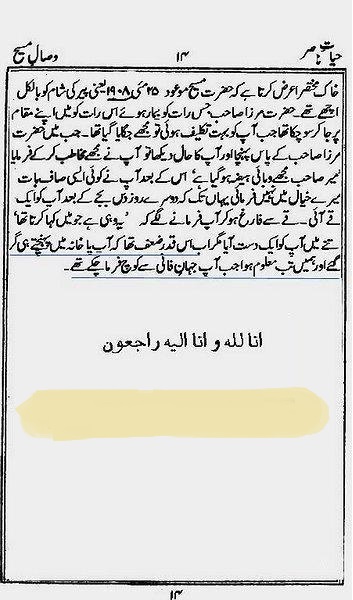 حیات ناصر ۱۴ وصال مسیح
خاک مختصر عرض کرتا ہے کہ حضرت مسیح موعود ۲۵ مئی ۱۹۰۸ یعنی پیر کی شام کو بالکل
اچھے تھے۔ حضرت مرزا صاحب جس رات کو بیمار ہوئے اس رات کو میں اپنے مقام
پر جا کر سو چکا تھا جب آپ کو بہت تکلیف ہوئی تو مجھے جگایا گیا تھا۔ جب میں حضرت
مرزا صاحب کے پاس پہنچا اور آپ کا حال دیکھا تو آپ نے مجھے مخاطب کر کے فرمایا
'میر صاحب مجھے وبائی ہیضہ ہو گیا ہے' اس کے بعد آپ نے کوئی ایسی صاف بات
میرے خیال میں نہیں فرمائی یہاں تک کہ دوسرے روز دس بجے کے بعد آپ کو ایک
قے آئی۔ قے سے فارغ ہو کر آپ فرمانے لگے کہ 'یہ وہی ہے جو میں کہا کرتا تھا'
تنے میں آپ کو ایک دست آیا مگر اب اس قدر ضعف تھا کہ آپ پا خانہ میں پہنچتے ہی گر
گئے اور ہمیں تب معلوم ہوا جب آپ جہان فانی سے کوچ فرما چکے تھے۔
انا لله و انا اليه راجعون
۱۴